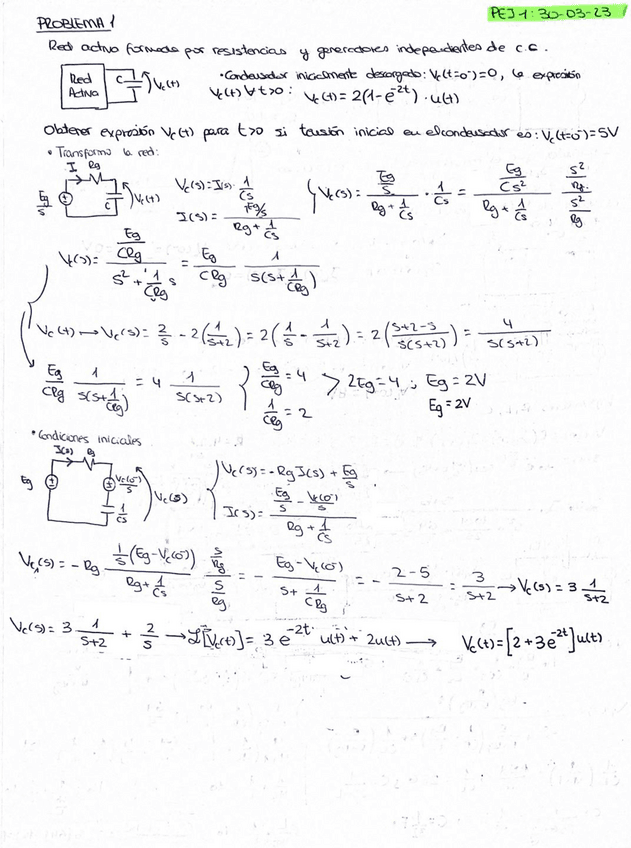 PROBLEMA 1
PEJ 1: 30-03-23
Red activa formada por resistencias y generadores independientes de c.c.
Red Activa C Vc(t)
• Condensador inicialmente descargado: Vc(t=0⁻)=0, la expresión
Vc(t) ∀ t>0: Vc(t) = 2(1-e^-2t) · u(t)
Obtener expresión Vc(t) para t>0 si tensión inicial en el condensador es: Vc(t=0⁻)=5V
• Transformo la red:
I Rg Eg/s C Vc(t)
Vc(s)=I(s)· 1/Cs
I(s) = (Eg/s)/(Rg + 1/Cs)
Vc(s) = (Eg/s)/(Rg + 1/Cs) · 1/Cs = (Eg/Cs²)/(Rg + 1/Cs) (s²/Rg)/(s²/Rg)
Vc(s) = (Eg/CRg)/(s² + 1/CRg s) = Eg/CRg 1/(s(s+1/CRg))
Vc(t) → Vc(s) = 2/s - 2(1/(s+2)) = 2(1/s - 1/(s+2)) = 2((s+2-s)/(s(s+2))) = 4/(s(s+2))
Eg/CRg 1/(s(s+1/CRg)) = 4 1/(s(s+2)) { Eg/CRg = 4 1/CRg = 2 > 2Eg = 4 ; Eg = 2V
Eg = 2V
• Condiciones iniciales
I(s) Rg Eg Vc(0⁻)/s 1/Cs Vc(s)
Vc(s) = -Rg I(s) + Eg/s
I(s) = (Eg/s - Vc(0⁻)/s)/(Rg + 1/Cs)
Vc₁(s) = - Rg (1/s (Eg-Vc(0⁻)))/(Rg + 1/Cs) (s/Rg)/(s/Rg) = - (Eg-Vc(0⁻))/(s + 1/CRg) = - (2-5)/(s+2) = 3/(s+2) → Vc(s) = 3 1/(s+2)
Vc(s) = 3 1/(s+2) + 2/s → ℒ[Vc(t)] = 3 e^-2t u(t) + 2u(t) → Vc(t) = [2+3e^-2t] u(t)